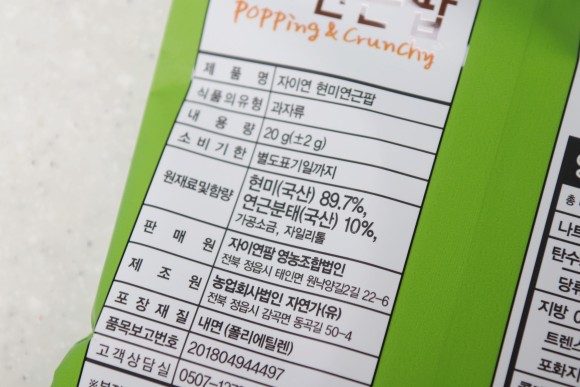 연근팝
Popping & Crunchy
제품명 자이연 현미연근팝
식품의유형 과자류
내용량 20 g(±2 g)
소비기한 별도표기일까지
원재료및함량 현미(국산) 89.7%,
연근분태(국산) 10%,
가공소금, 자일리톨
판매원 자이연팜 영농조합법인
전북 정읍시 태인면 원낙양길2길 22-6
제조원 농업회사법인 자연가(유)
전북 정읍시 감곡면 동곡길 50-4
포장재질 내면 (폴리에틸렌)
품목보고번호 201804944497
고객상담실
총
나트
탄수
당류
지방
트랜스
포화지